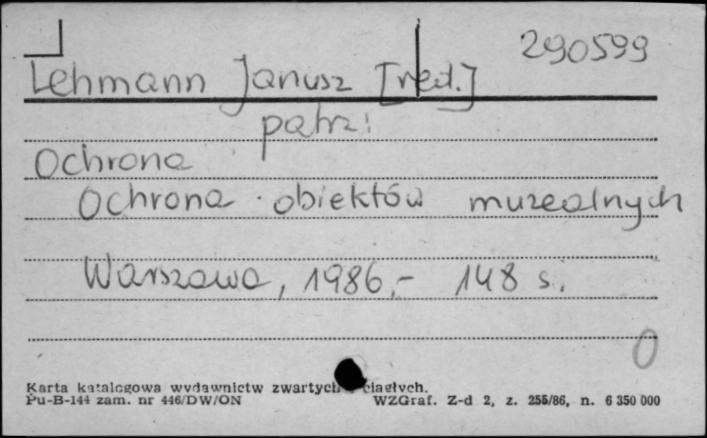 290599
Lehmann Janusz [red.]
patrz:
Ochrona
Ochrona obiektów muzealnych
Warszawa, 1986.- 148 s.
0
Karta katalogowa wydawnictw zwartych i ciągłych.
Pu-B-144 zam. nr 446/DW/ON WZGraf. Z-d 2, z. 255/86, n. 6 350 000